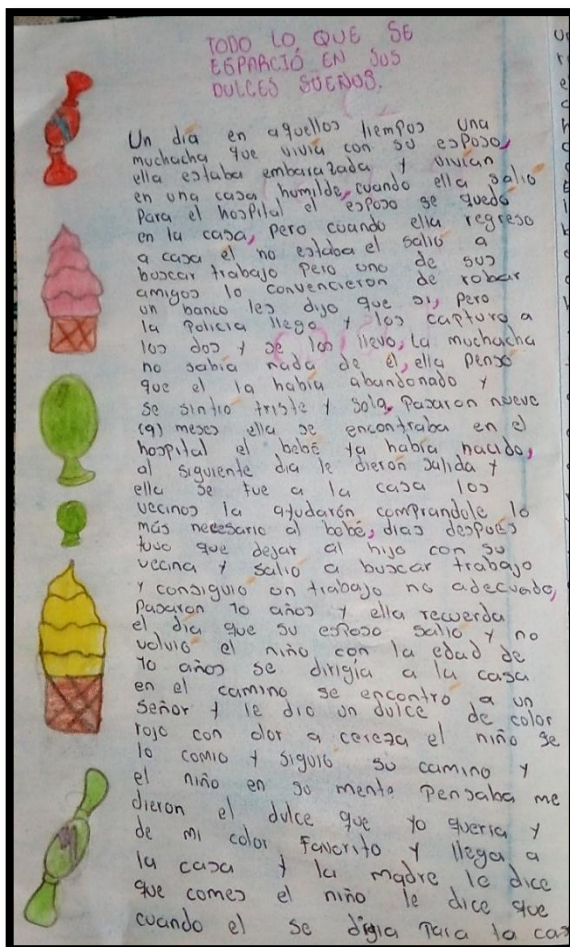 TODO LO QUE SE
ESPARCIÓ EN SUS
DULCES SUEÑOS.
Un día en aquellos tiempos una
muchacha que vivia con su esposo,
ella estaba embarazada y vivían
en una casa humilde, cuando ella salio
para el hospital el esposo se quedo
en la casa, pero cuando ella regreso
a casa el no estaba el salio a
buscar trabajo pero uno de sus
amigos lo convencieron de robar
un banco les dijo que si, pero
la policia llego y los capturo a
los dos y se los llevo, La muchacha
no sabia nada de él, ella penso
que el la había abandonado y
se sintio triste y sola, Pasaron nueve
(9) meses ella se encontraba en el
hospital el bebé ya había nacido,
al siguiente dia le dieron salida y
ella se fue a la casa los
vecinos la ayudarón comprandole lo
más necesario al bobé, dias después
tuvo que dejar al hijo con su
vecina y salio a buscar trabajo
y consiguio un trabajo no adecuado,
Pasaron 10 años y ella recuerda
el día que su esposo salio y no
volvio el niño con la edad de
10 años se dirigía a la casa
en el camino se encontro a un
señor y le dio un dulce de color
rojo con olor a cereza el niño se
lo comio y siguio su camino y
el niño en su mente pensaba me
dieron el dulce que yo queria y
de mi color favorito y llega a
la casa y la madre le dice
que comes el niño le dice que
cuando el se digia para la cas